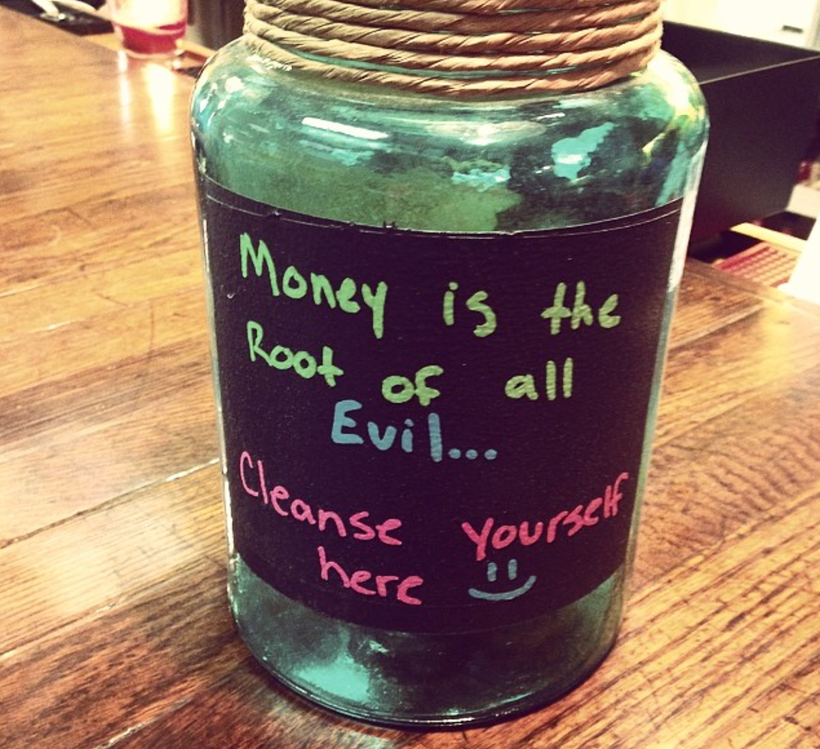 Money is the
Root of all
Evil...
Cleanse yourself
here